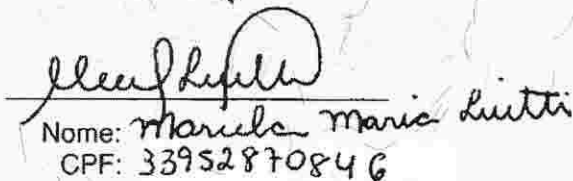 Nome: Mariela Maria Liutti
CPF: 33952870846